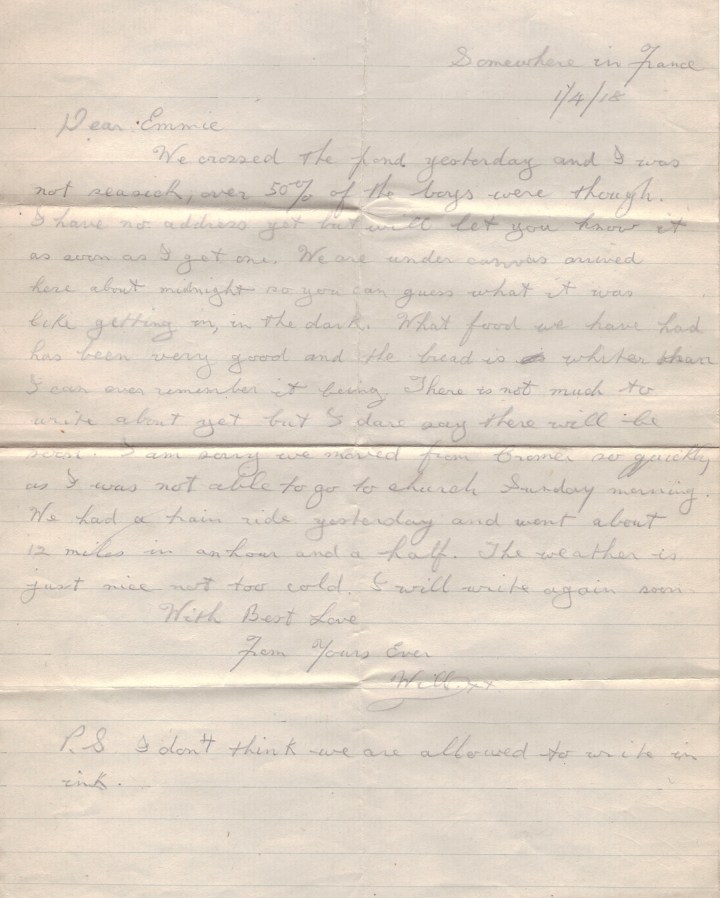 Somewhere in France
1/4/18
Dear Emmie
We crossed the pond yesterday and I was
not seasick, over 50% of the boys were though.
I have no address yet but will let you know it
as soon as I get one. We are under canvas arrived
here about midnight so you can guess what it was
like getting in, in the dark. What food we have had
has been very good and the bread is whiter than
I can ever remember it being. There is not much to
write about yet but I dare say there will be
soon. I am sorry we moved from Cromer so quickly
as I was not able to go to church Sunday morning.
We had a train ride yesterday and went about
12 miles in an hour and a half. The weather is
just nice not too cold. I will write again soon.
With Best Love
From Yours Ever
Will xx
P.S I don't think we are allowed to write in
ink.